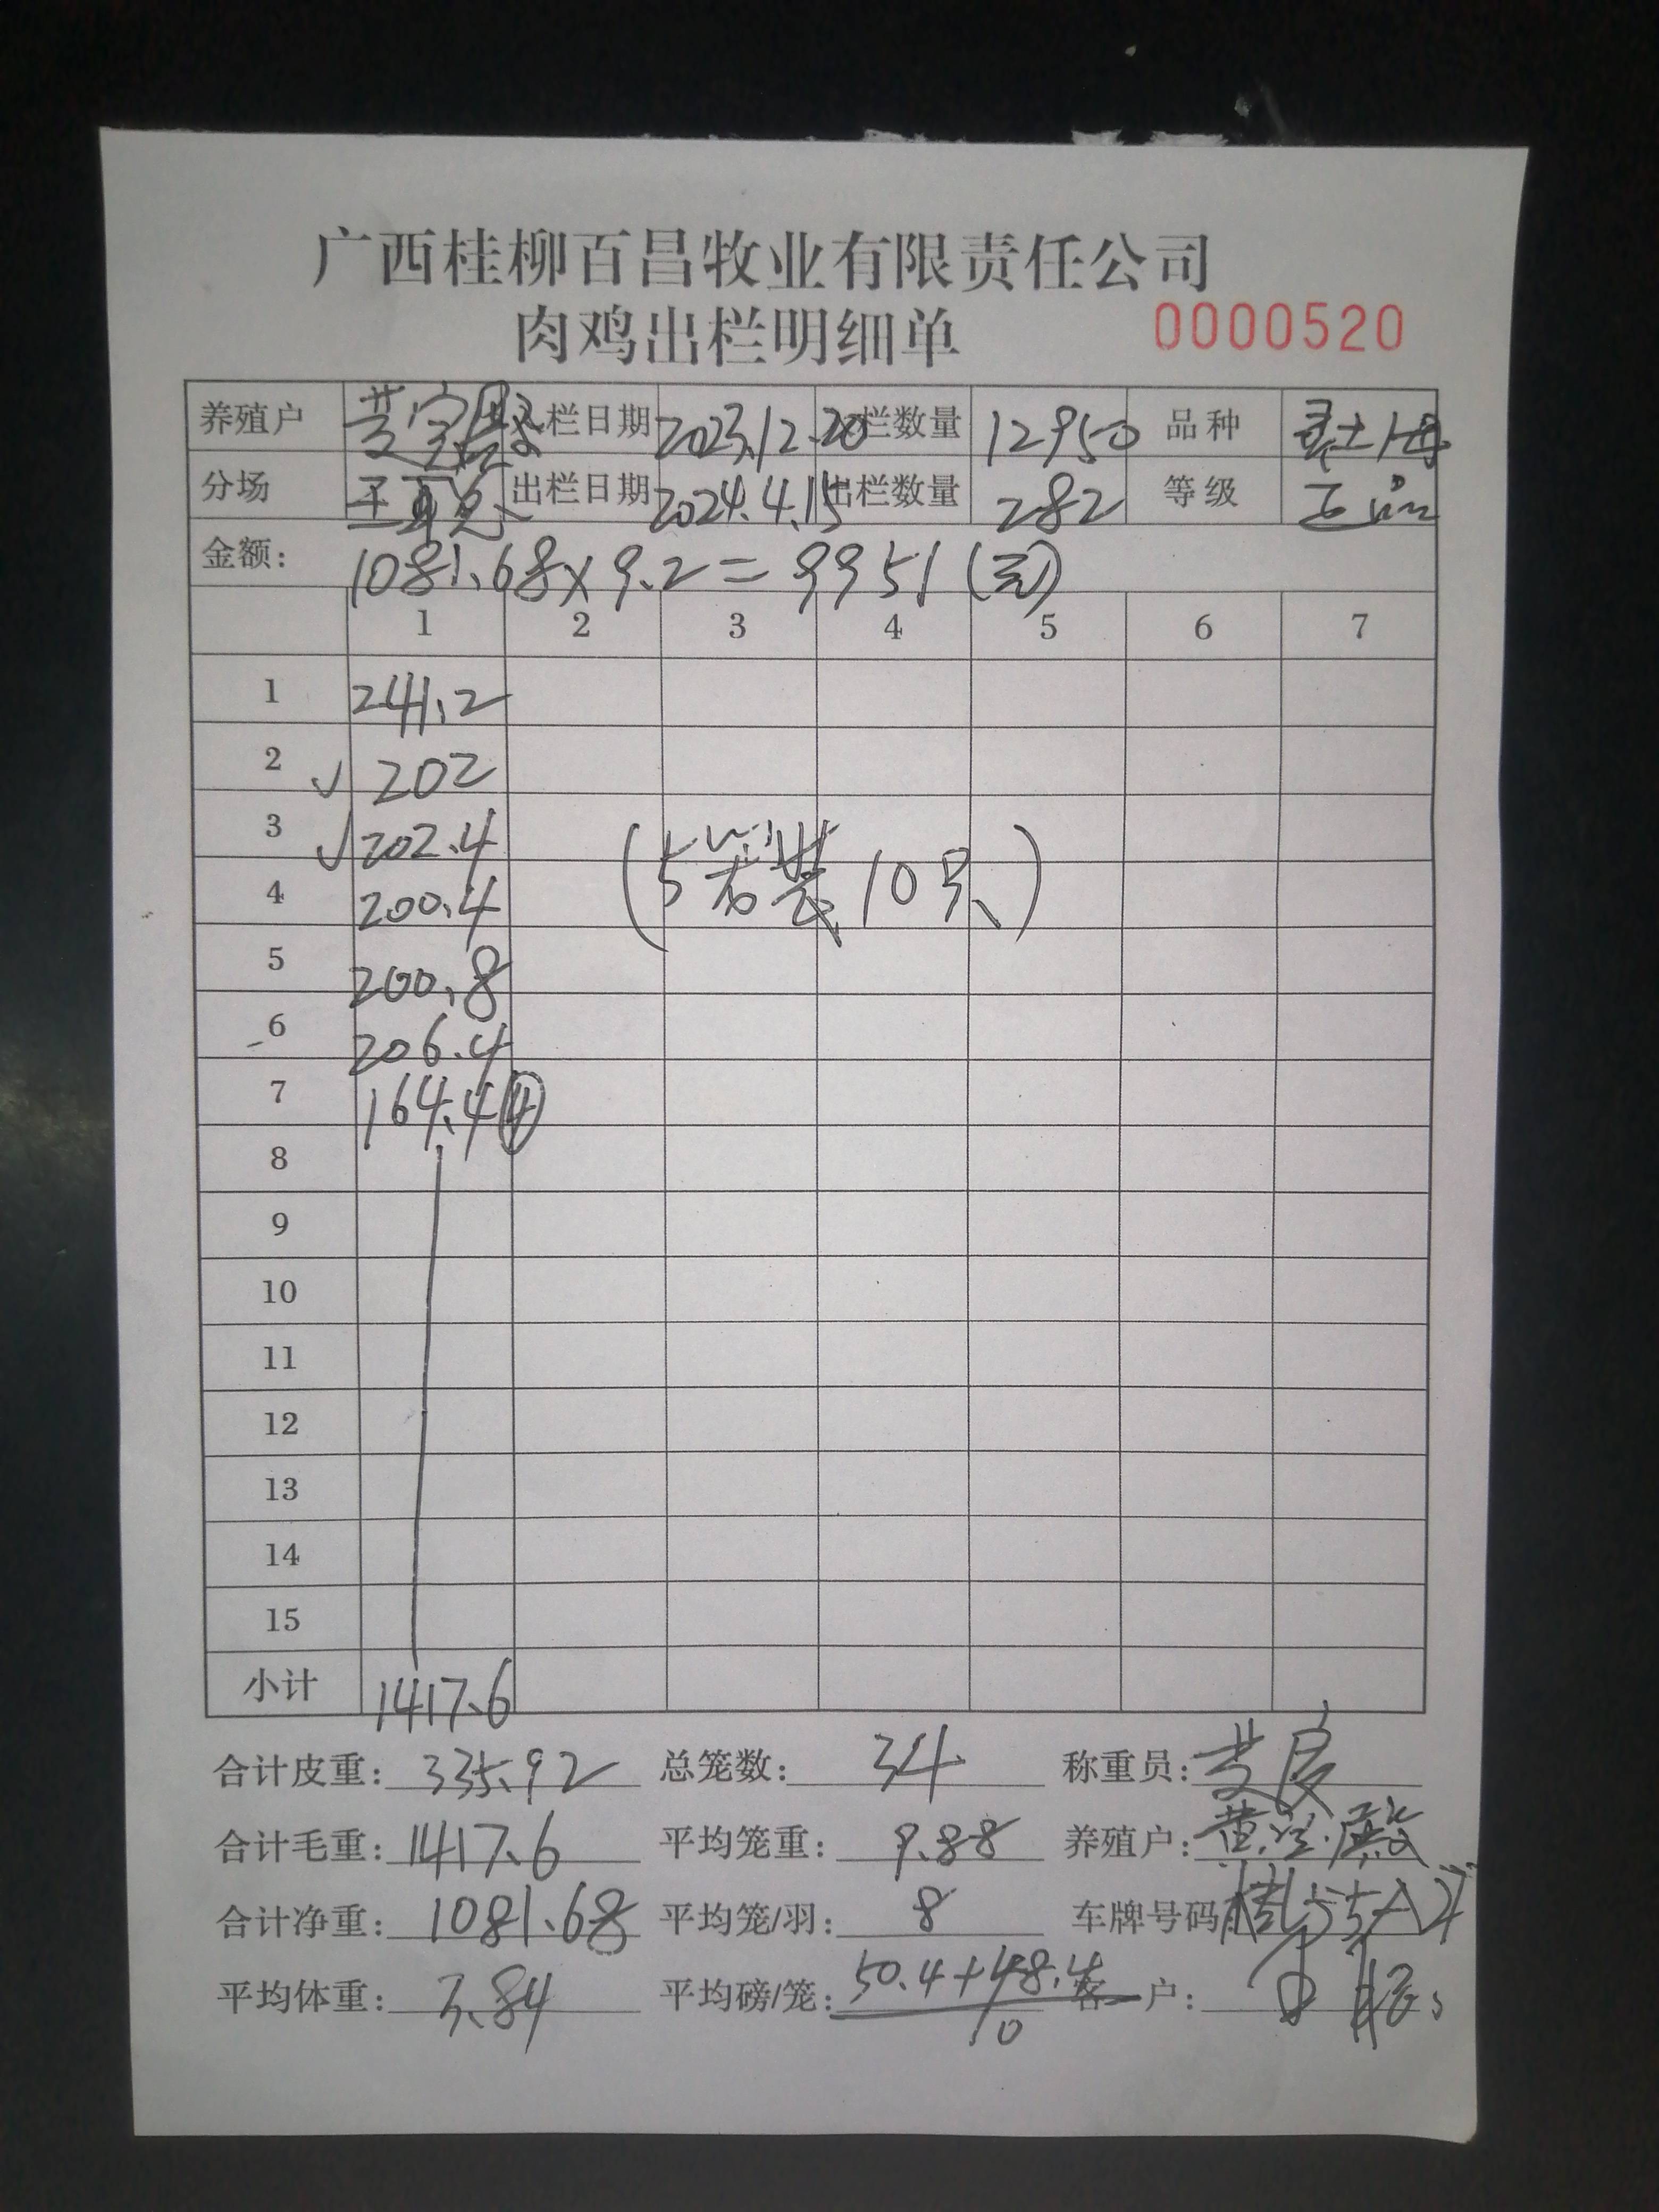 广西桂柳百昌牧业有限责任公司
肉鸡出栏明细单 0000520
养殖户 黄宝殿 入栏日期 2023.12.20 入栏数量 12950 品种 土
分场 出栏日期 2024.4.15 出栏数量 282 等级 正品
金额: 1081.68×9.2=9951(元)
1 2 3 4 5 6 7
1 241.2
2 √ 202
3 √ 202.4
(5笼装10只)
4 200.4
5 200.8
6 206.4
7 164.4 ④
8
9
10
11
12
13
14
15
小计 1417.6
合计皮重: 335.92 总笼数: 34 称重员: 黄
合计毛重: 1417.6 平均笼重: 9.88 养殖户: 黄宝殿
合计净重: 1081.68 平均笼/羽: 8 车牌号码 桂
平均体重: 3.84 平均磅/笼: 50.4+48.4 客 户:
10